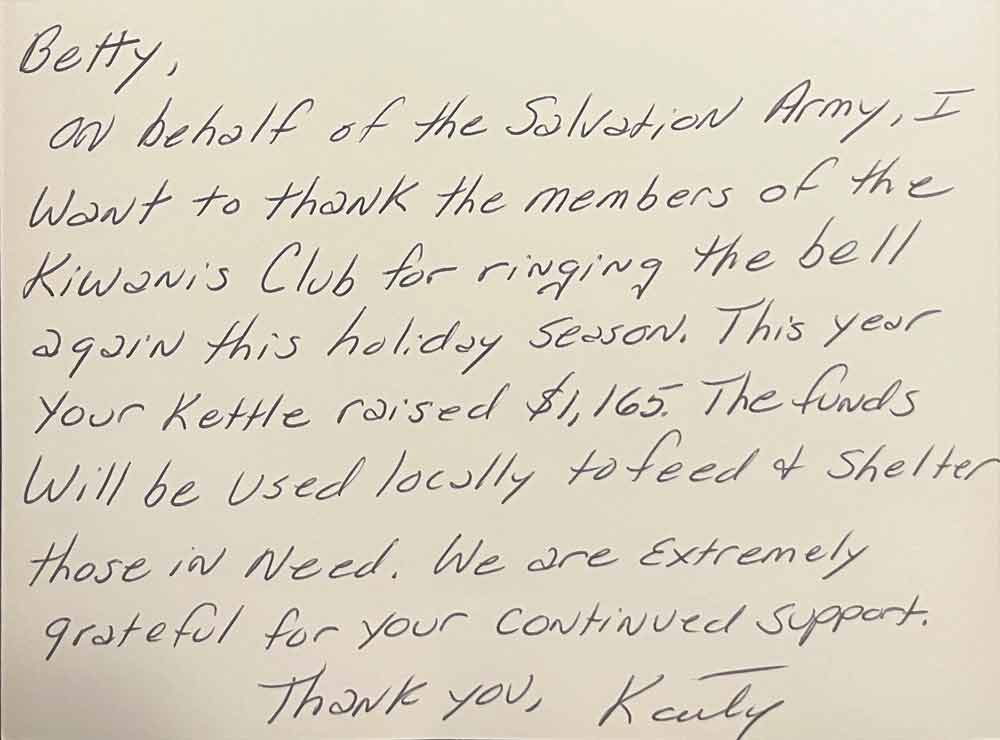 Betty,
on behalf of the Salvation Army, I
Want to thank the members of the
Kiwanis Club for ringing the bell
again this holiday season. This year
Your Kettle raised $1,165. The funds
Will be used locally to feed & shelter
those in Need. We are Extremely
grateful for your continued support.
Thank you,